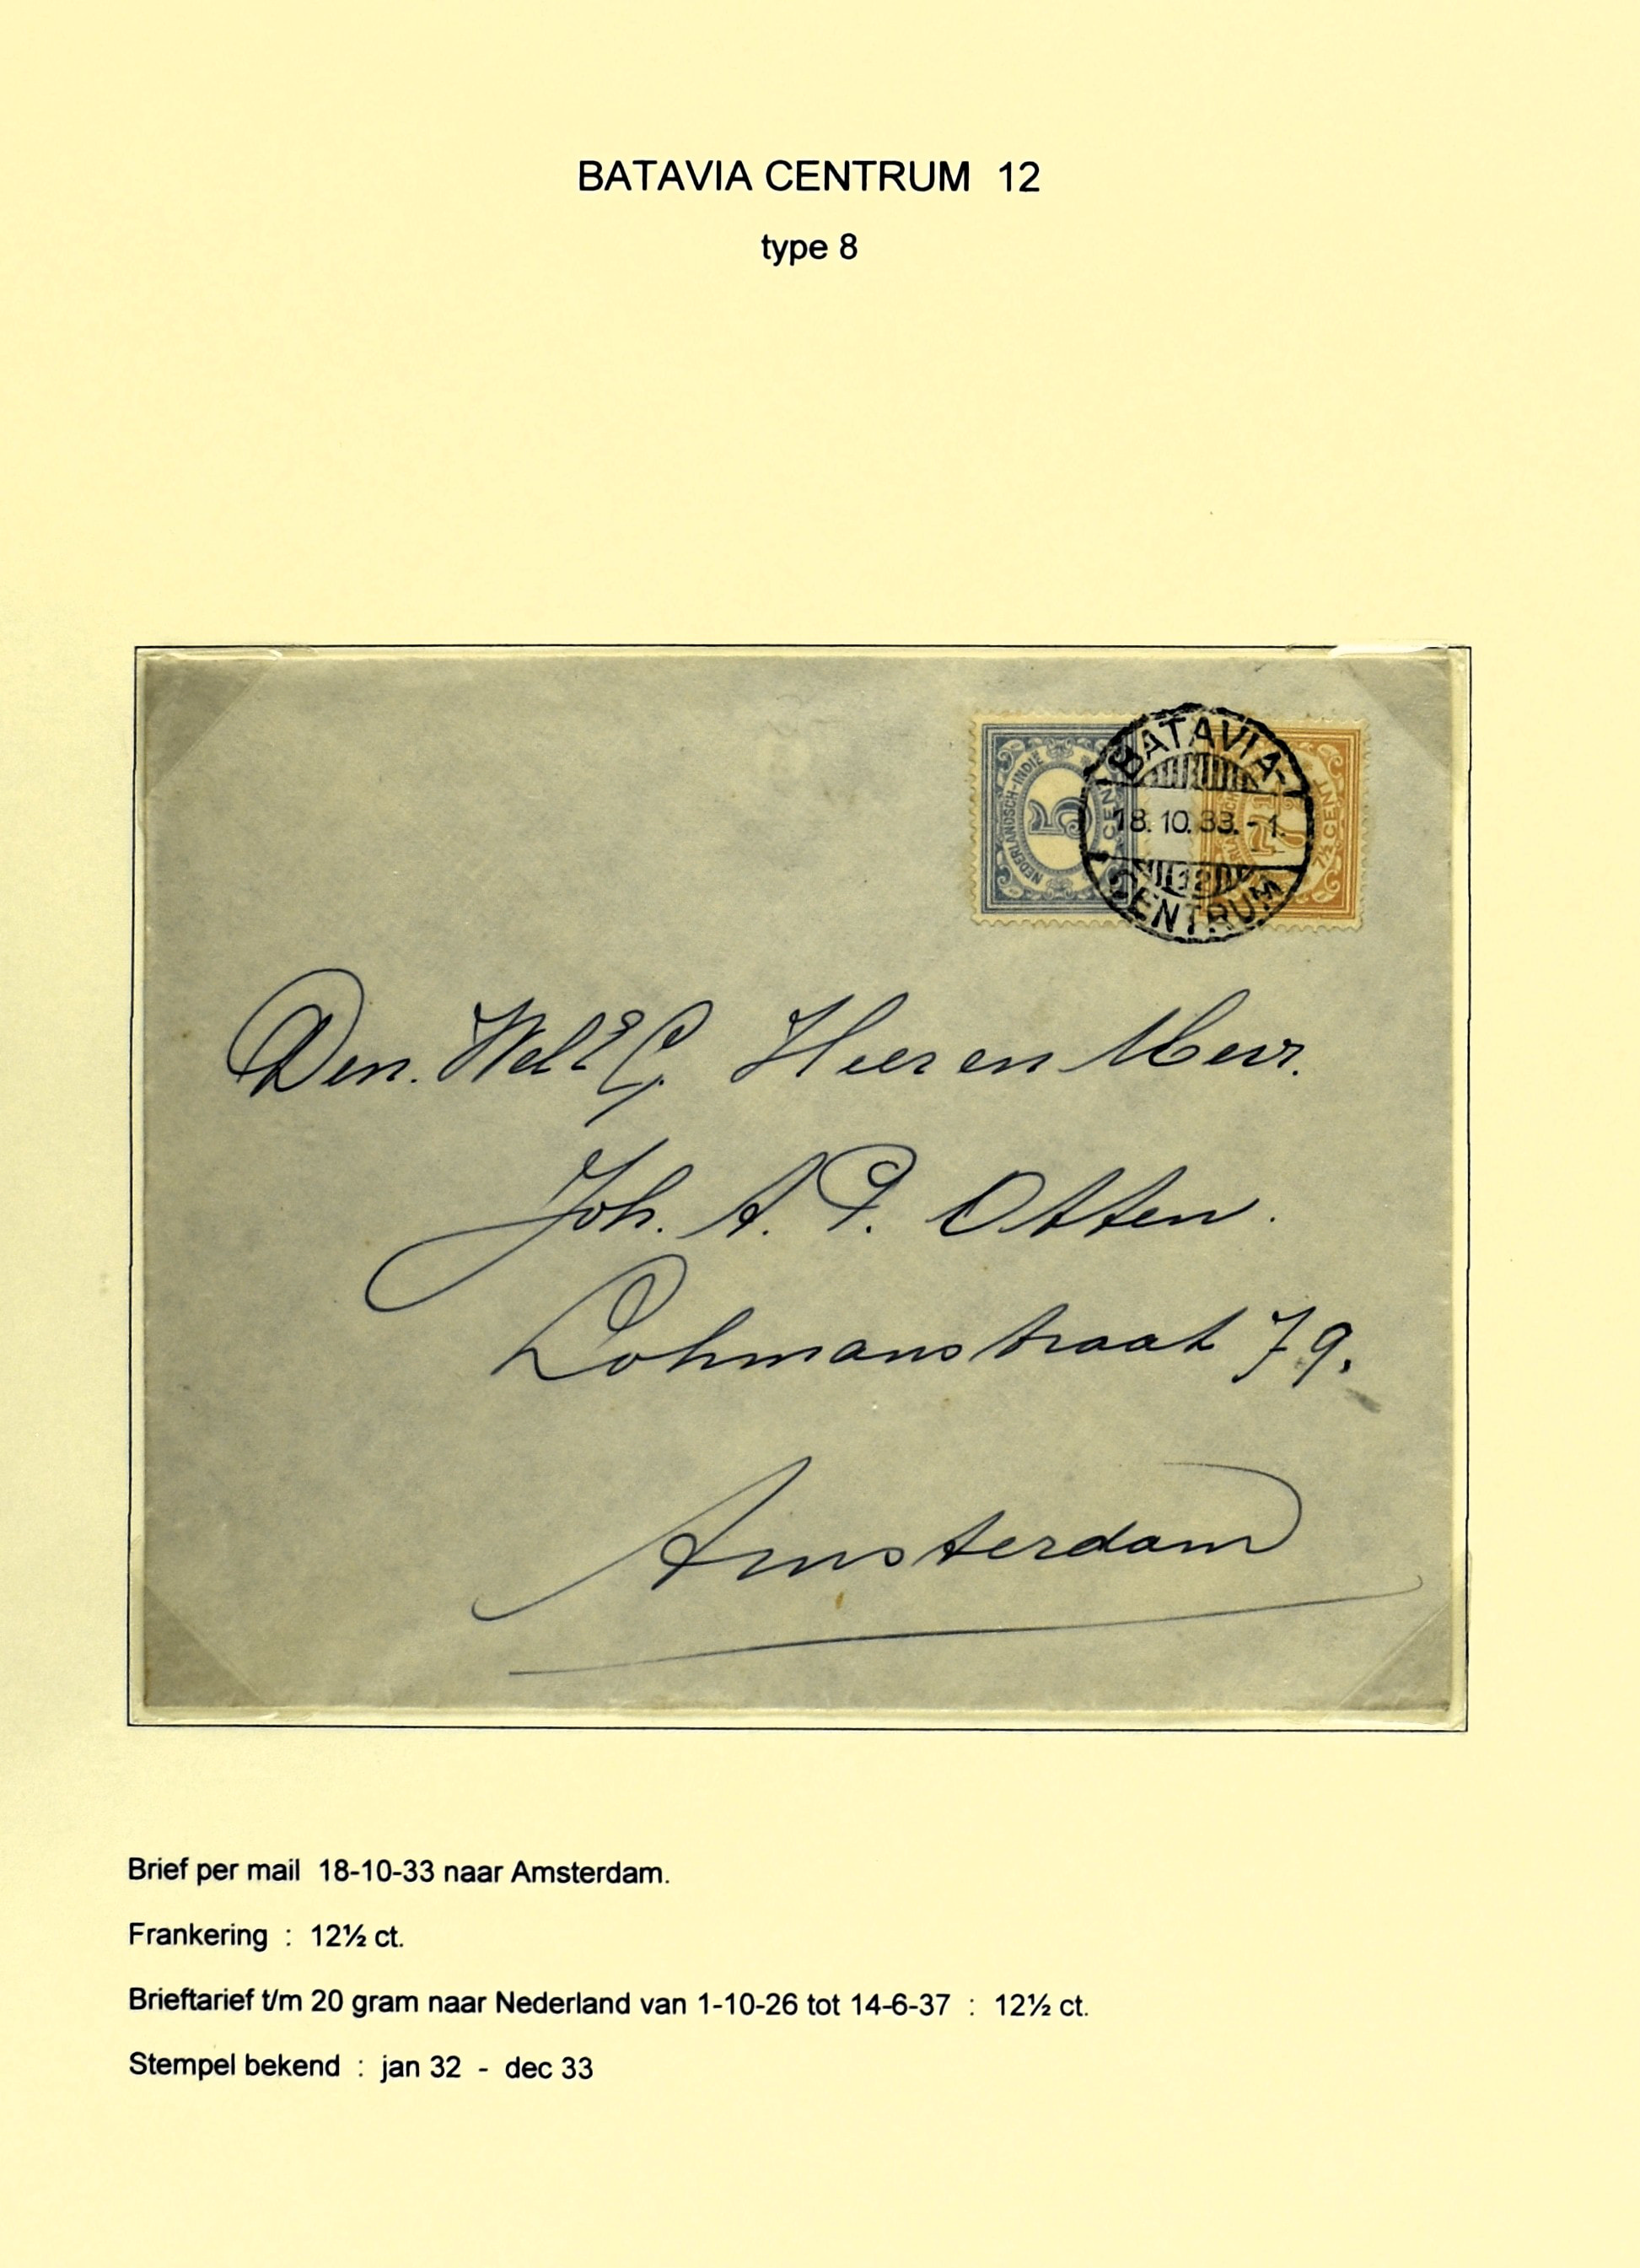 BATAVIA CENTRUM 12
type 8
NEDERLANDSCH-INDIË
5
CENT
7½
7½ CENT
BATAVIA-
18.10.33.-1.
12
CENTRUM
Den. WelEG. Heer en Mevr.
Joh. A. P. Otten.
Lohmanstraat 79.
Amsterdam
Brief per mail 18-10-33 naar Amsterdam.
Frankering : 12½ ct.
Brieftarief t/m 20 gram naar Nederland van 1-10-26 tot 14-6-37 : 12½ ct.
Stempel bekend : jan 32 - dec 33